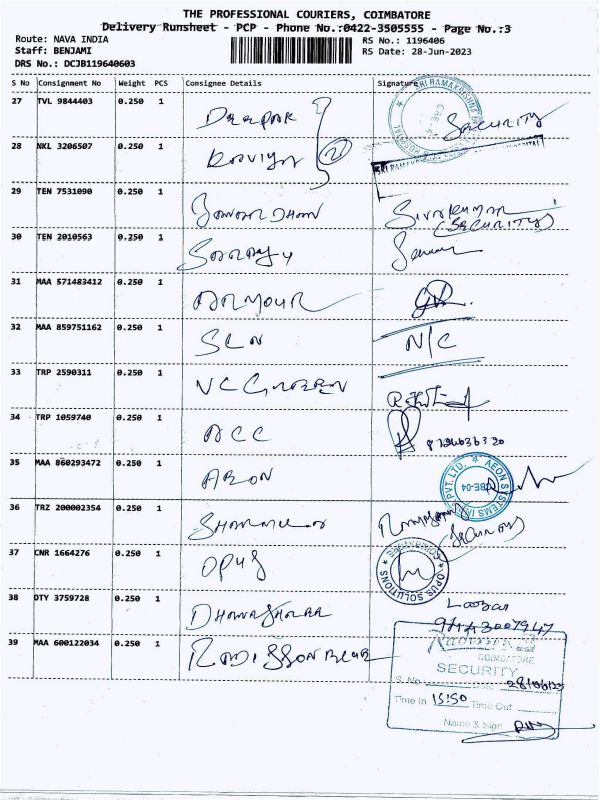 THE PROFESSIONAL COURIERS, COIMBATORE
Delivery Runsheet - PCP - Phone No.:0422-3505555 - Page No.:3
Route: NAVA INDIA
RS No.: 1196406
Staff: BENJAMI
RS Date: 28-Jun-2023
DRS No.: DCJB119640603
S No Consignment No Weight PCS Consignee Details Signature
27 TVL 9844403 0.250 1 Deepak Security
28 NKL 3206507 0.250 1 Kaviya 2
SRI RAMAKRISHNA HOSPITAL
29 TEN 7531090 0.250 1 Janardhan Sivakumar
(Security)
30 TEN 2010563 0.250 1
31 MAA 571483412 0.250 1 Armour
32 MAA 859751162 0.250 1 SLN N/C
33 TRP 2590311 0.250 1
34 TRP 1059740 0.250 1 ACC
35 MAA 860293472 0.250 1 AEON
AEON SYSTEMS PVT. LTD. CBE-04
36 TRZ 200002354 0.250 1
(Security)
37 CNR 1664276 0.250 1 OPUS
OPUS SOLUTIONS COIMBATORE
38 OTY 3759728 0.250 1 Dhanasekar
39 MAA 600122034 0.250 1 Radisson Blu
COIMBATORE
SECURITY
S. No Date 28/06/23
Time In 15:50 Time Out
Name & Sign